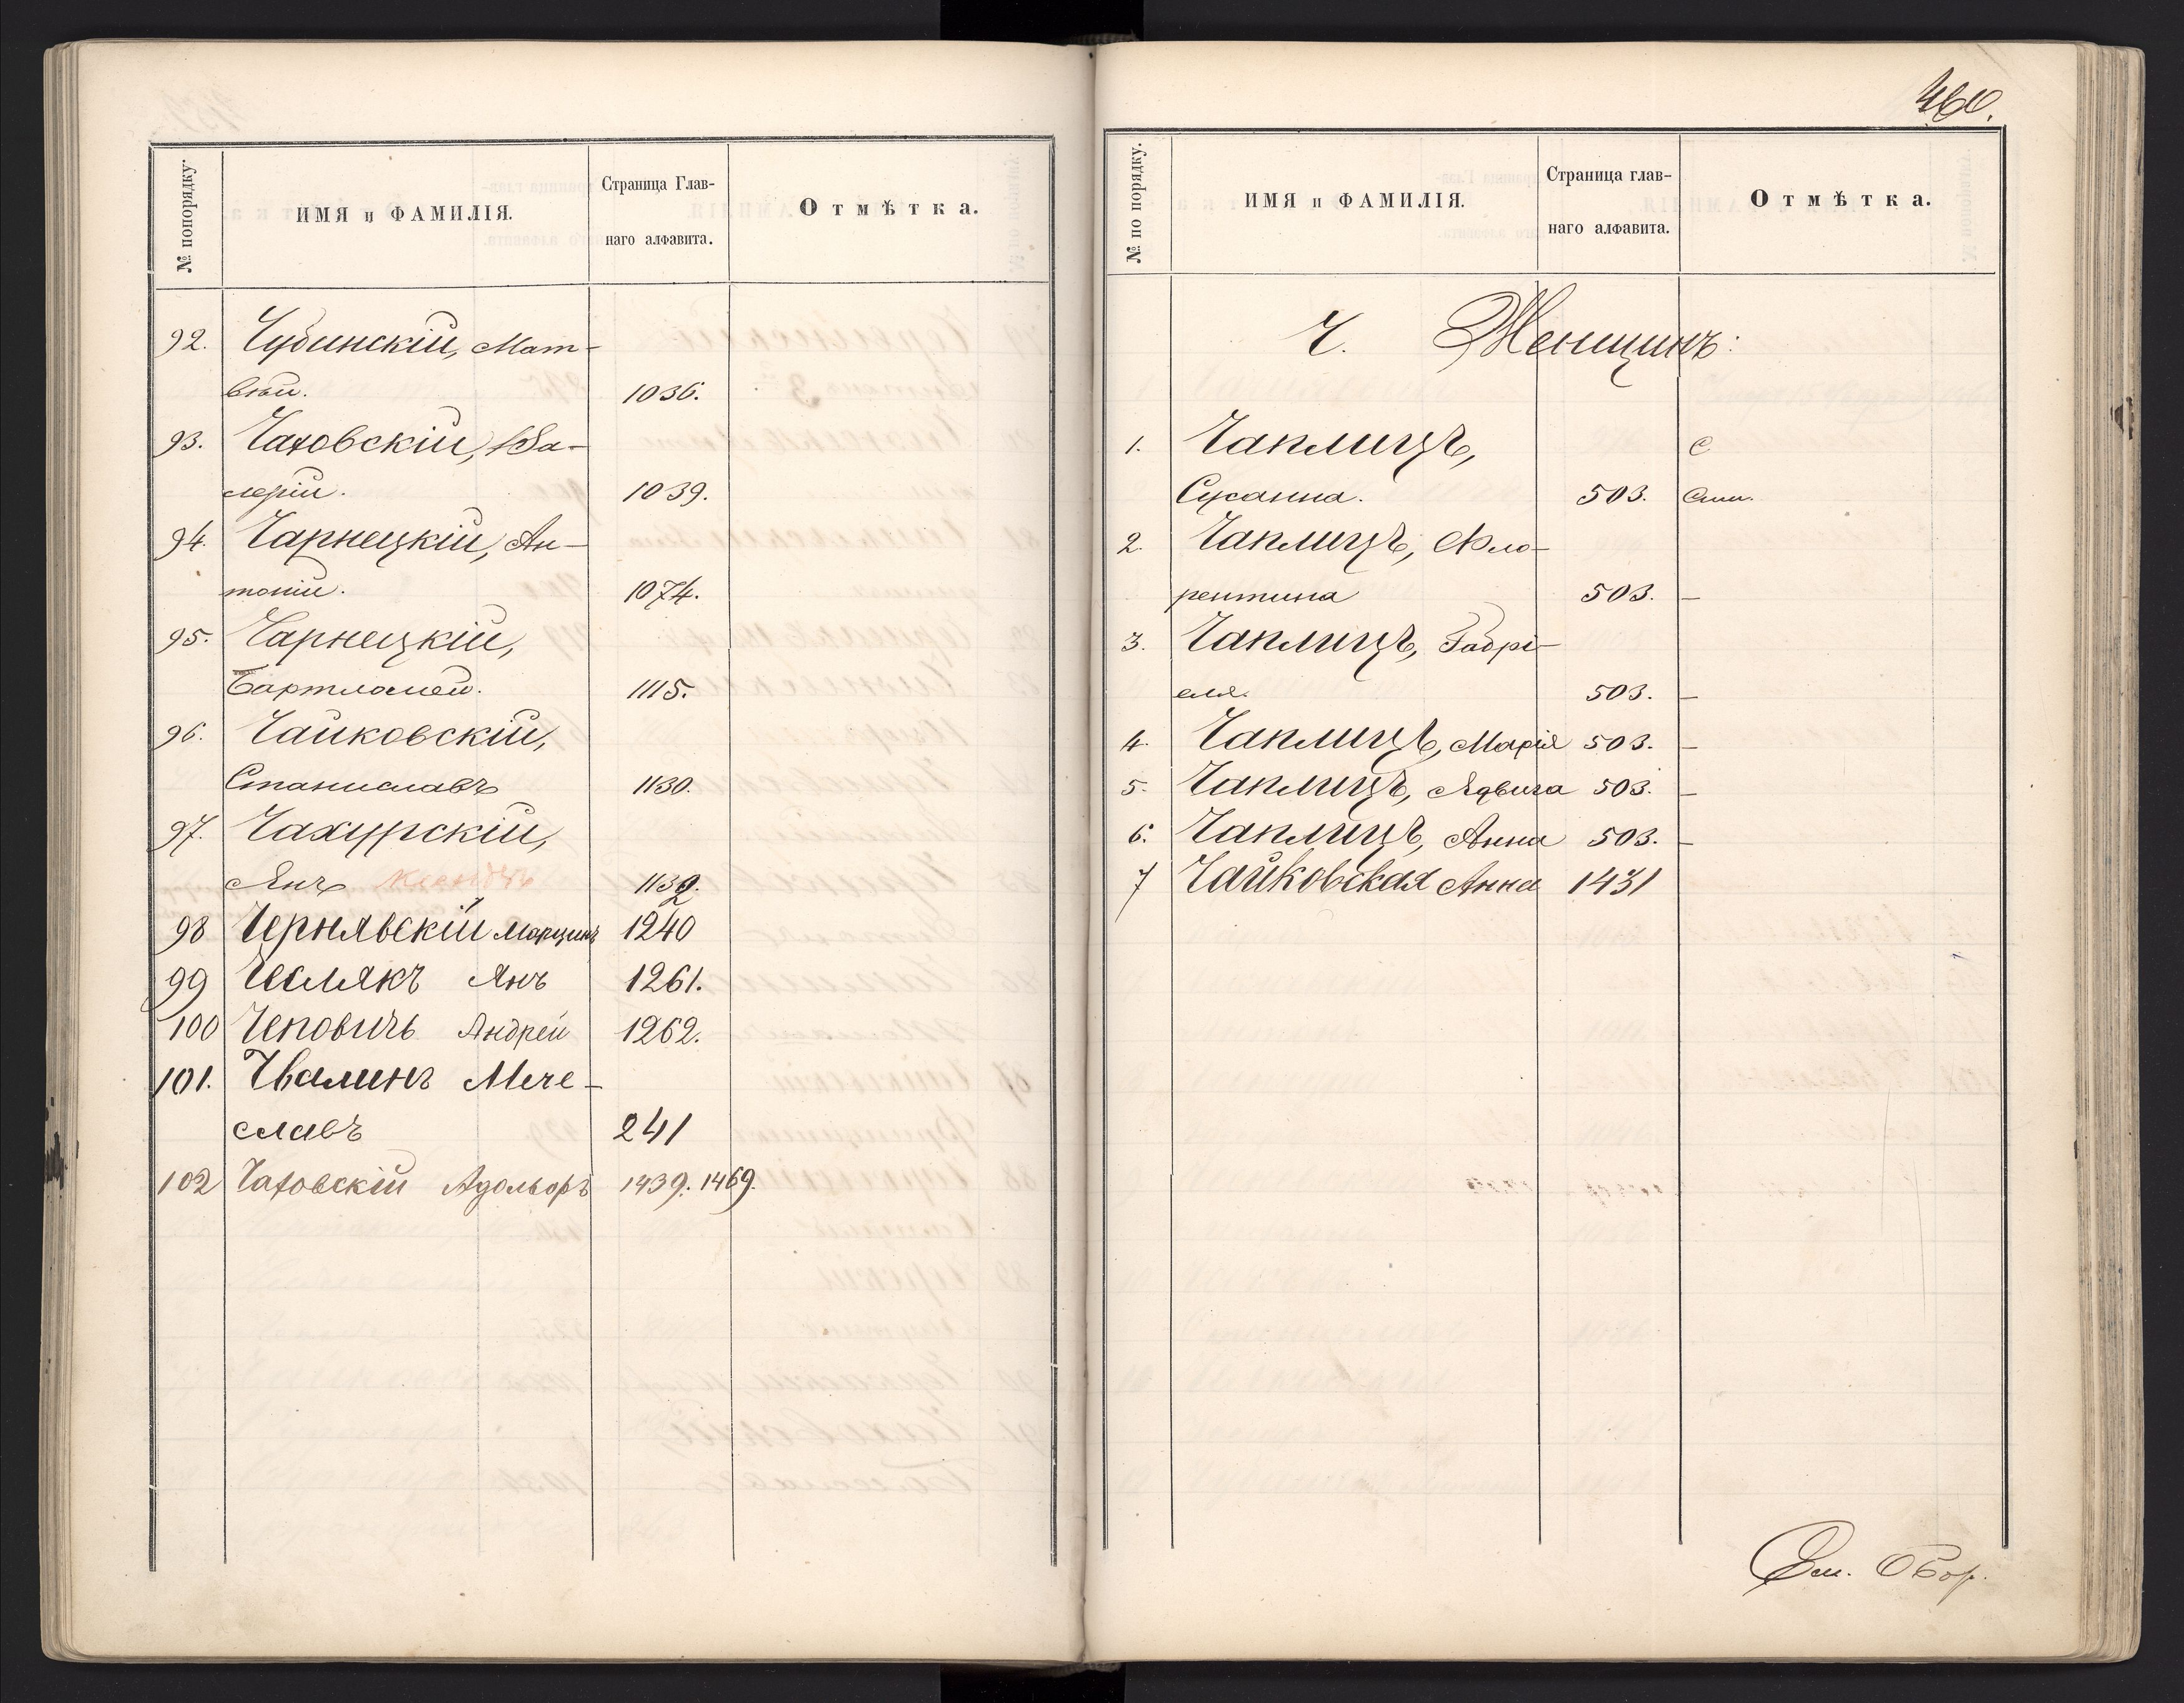 № попорядку.
ИМЯ и ФАМИЛІЯ.
Страница Глав-
наго алфавита.
Отмѣтка.
92. Чубинскій, Мат-
вѣй. 1036.
93. Чаховскій, Ва-
лерій. 1039.
94. Чарнецкій, Ан-
тоній. 1074.
95. Чарнецкій,
Бартломей. 1115.
96. Чайковскій,
Станиславъ 1130.
97. Чахурскій,
Янъ ксендзъ 1132.
98 Чернявскій Марцинъ 1240
99 Чеслякъ Янъ 1261.
100 Чеповичъ Андрей 1262.
101. Чвалинъ Мече-
славъ 241
102 Чаховскій Адольфъ 1439. 1469.
460.
№ по порядку.
ИМЯ и ФАМИЛІЯ.
Страница глав-
наго алфавита.
Отмѣтка.
Ч. Женщинъ:
1. Чаплицъ, С
Сусанна. 503.
2. Чаплицъ, Фло-
рентина 503. —
3. Чаплицъ, Габрі-
еля. 503. —
4. Чаплицъ, Марія 503. —
5. Чаплицъ, Ядвига 503. —
6. Чаплицъ, Анна 503. —
7 Чайковская Анна 1431
См. Обор.